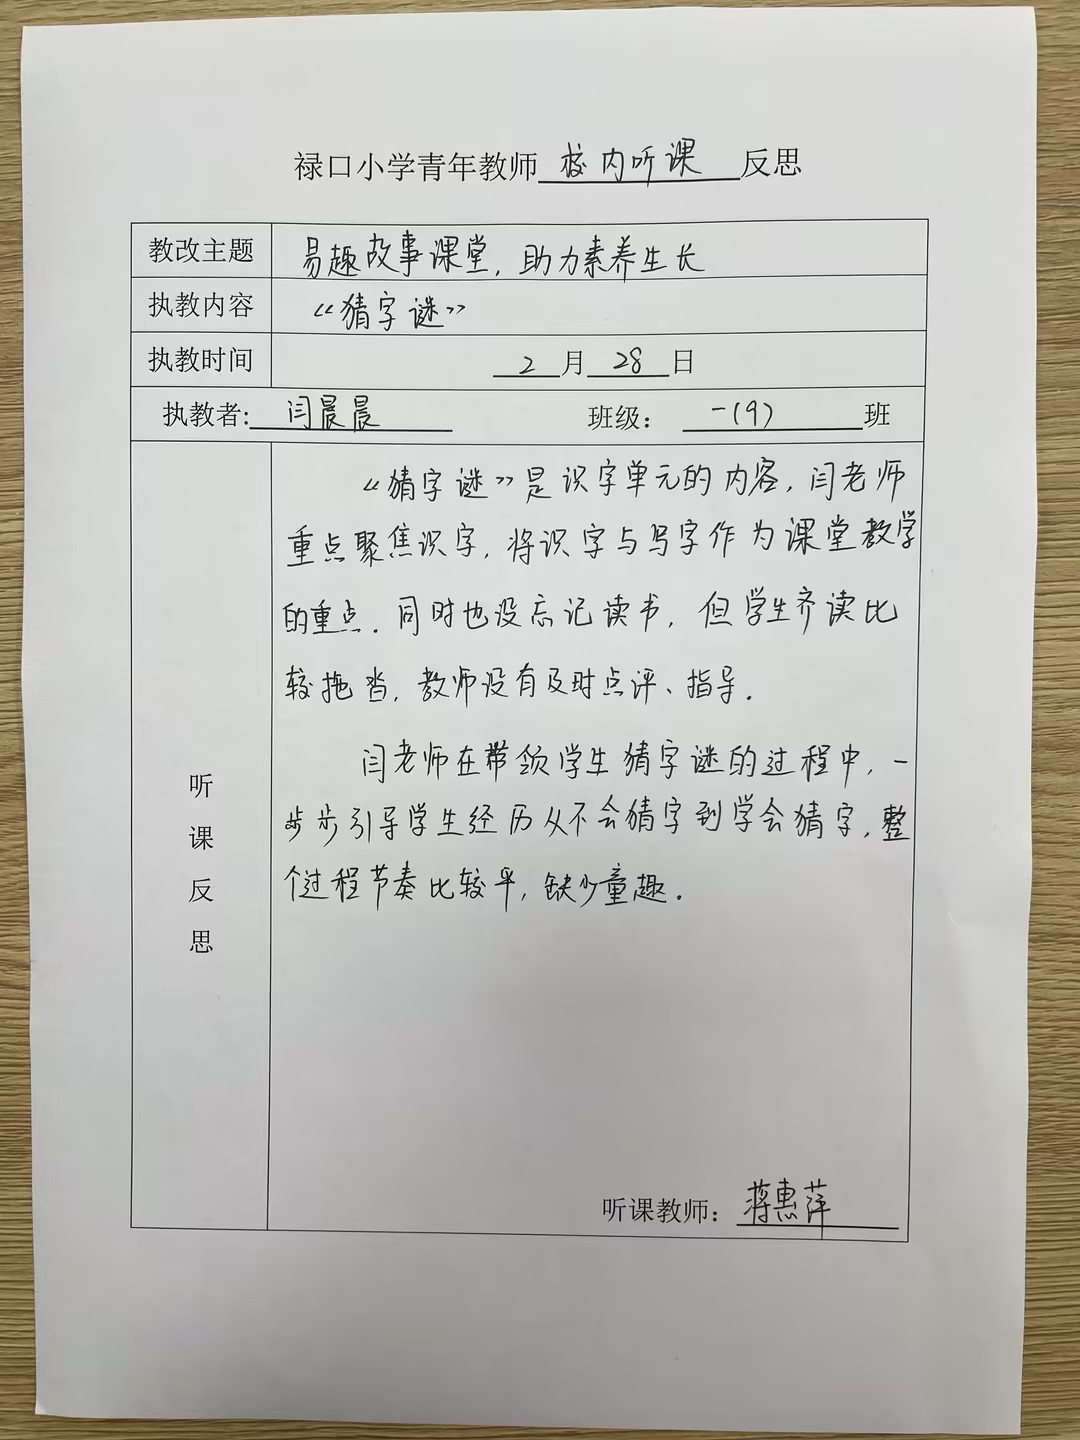 禄口小学青年教师校内听课反思
教改主题 易趣故事课堂，助力素养生长
执教内容 《猜字谜》
执教时间 2月28日
执教者：闫晨晨 班级：一(9)班
《猜字谜》是识字单元的内容，闫老师
重点聚焦识字，将识字与写字作为课堂教学
的重点．同时也没忘记读书，但学生齐读比
较拖沓，教师没有及时点评、指导．
闫老师在带领学生猜字谜的过程中，一
步步引导学生经历从不会猜字到学会猜字，整
个过程节奏比较平，缺少童趣．
听
课
反
思
听课教师：蒋惠萍